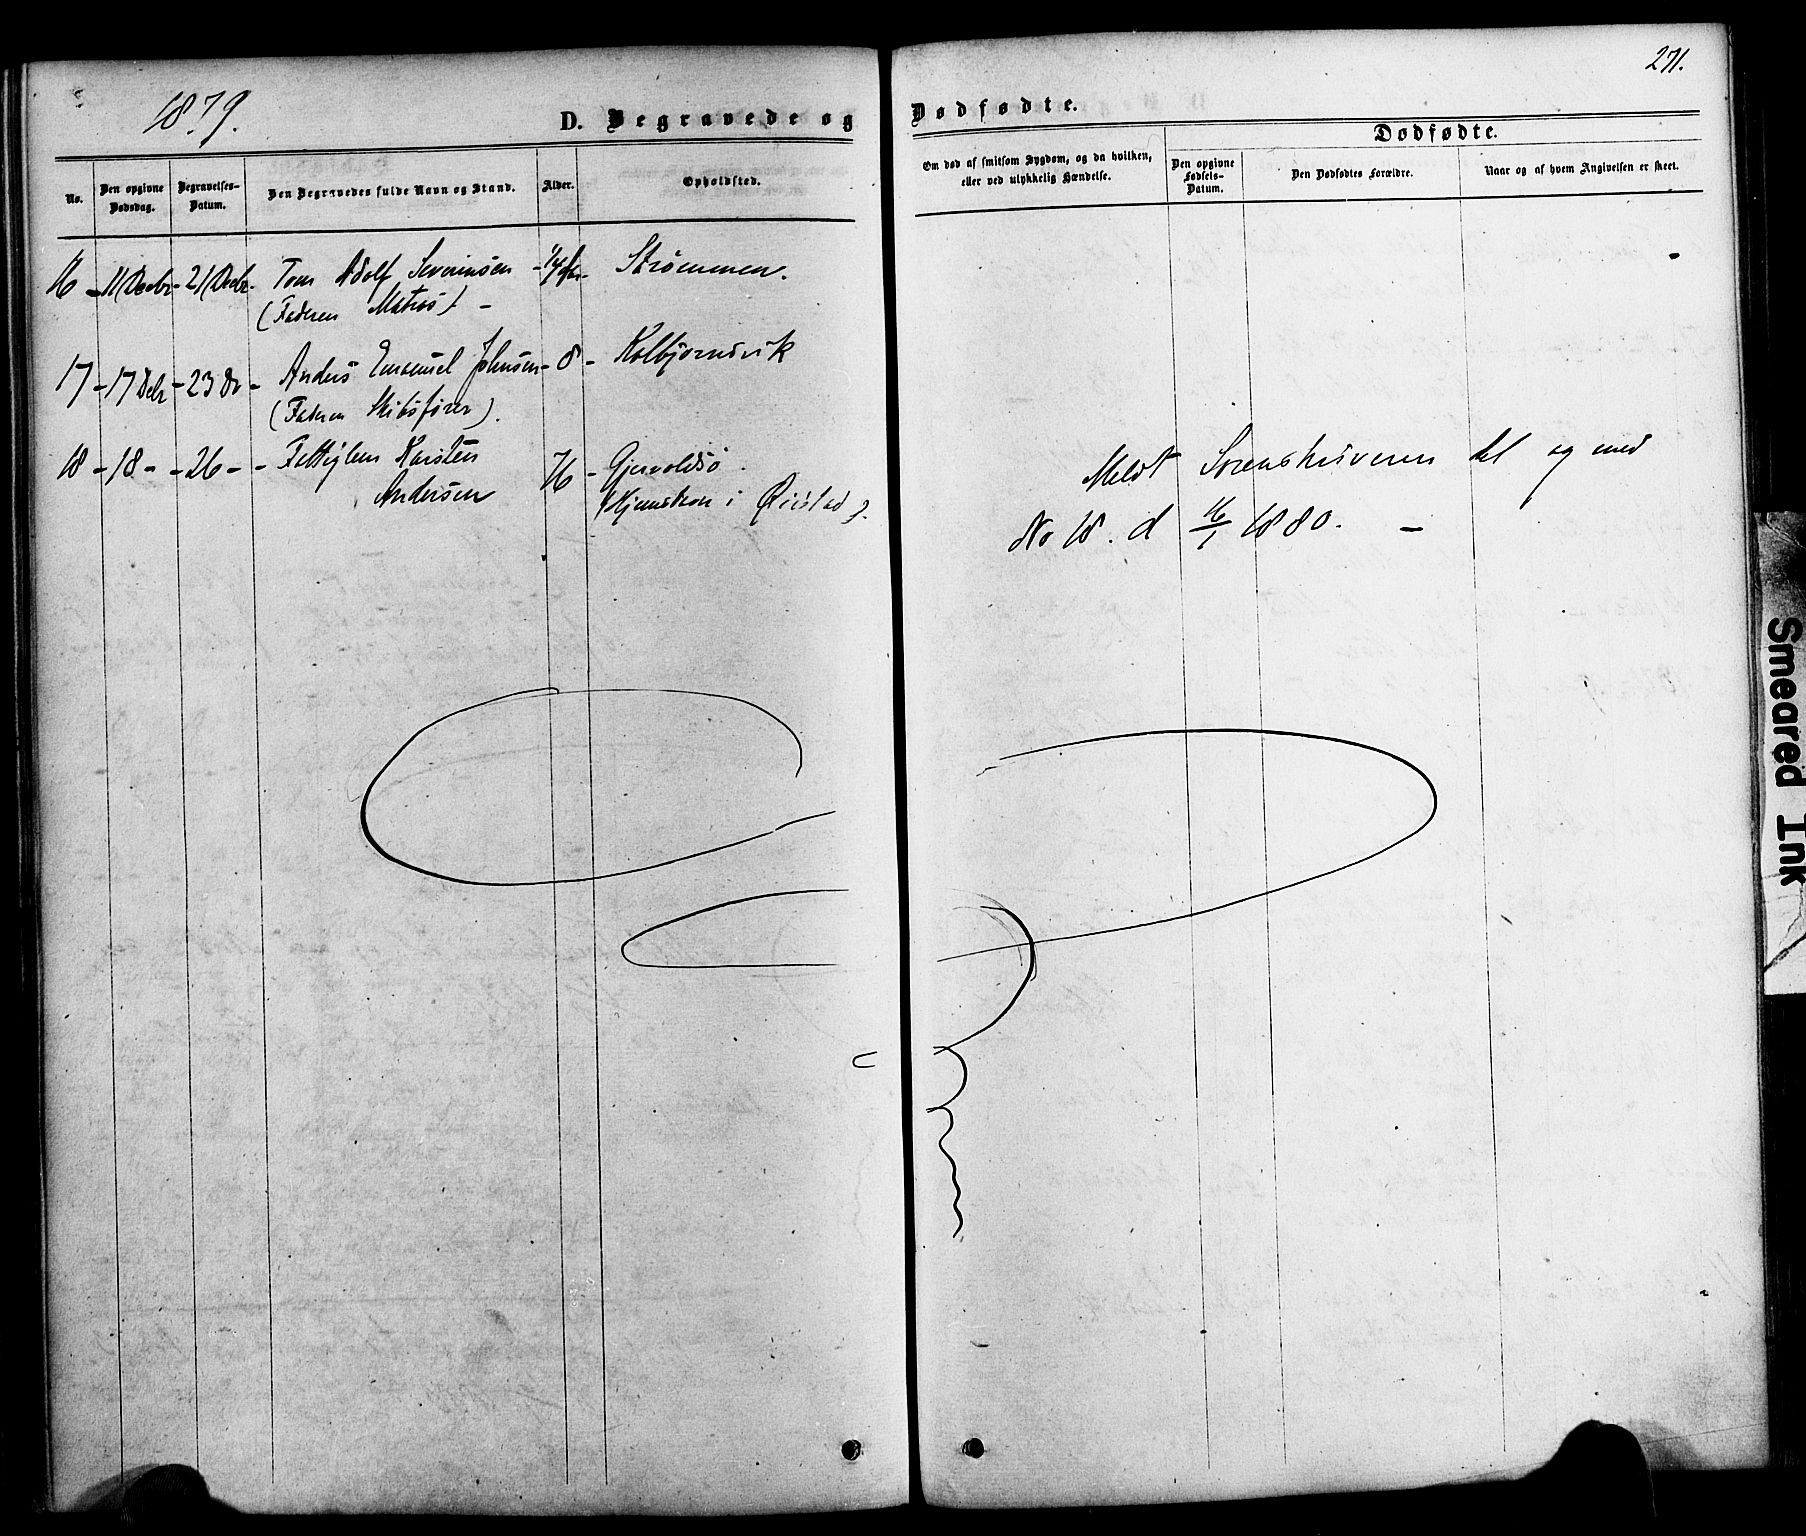 1879.
D. Begravede og
No.
Den opgivne Dødsdag.
Begravelses-Datum.
Den Begravedes fulde Navn og Stand.
Alder.
Opholdsted.
16 - 11 Decbr - 21 Decbr - Tom Adolf Severinsen - Strømmen.
(Faderen Matros) -
17 - 17 Debr - 23 Do - Anders Emanuel Johnsen - 8 - Kolbjørnsvik
(Faderen Skibsfører).
18 - 18 - - 26 - - Karsten 76 - Gjervoldsø.
Andersen Hjemsten i Øiestad
271.
Dødfødte.
Om død af smitsom Sygdom, og da hvilken,
eller ved ulykkelig Hændelse.
Dødfødte.
Den opgivne Fødsels-Datum.
Den Dødfødtes Forældre.
Naar og af hvem Angivelsen er skeet.
Meldt Sorenskriveren til og med
No 18. d 16/1 1880. -
Smeared Ink